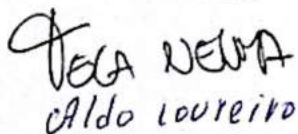 VEGA NEUMA
Aldo Loureiro